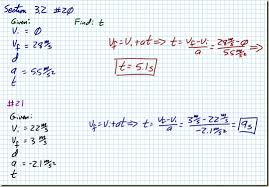 Section 3.2 #20
Given: Find: t
V₁ = 0
V_f = 28 m/s
d
a = 5.5 m/s²
V_f = V₁ + at ⇒ t = (V_f - V₁)/a = (28 m/s - 0)/(5.5 m/s²) ⇒
t = 5.1s
#21
Given:
V₁ = 22 m/s
V_f = 3 m/s
d
a = -2.1 m/s²
t
V_f = V₁ + at ⇒ t = (V_f - V₁)/a = (3 m/s - 22 m/s)/(-2.1 m/s²) = 9s